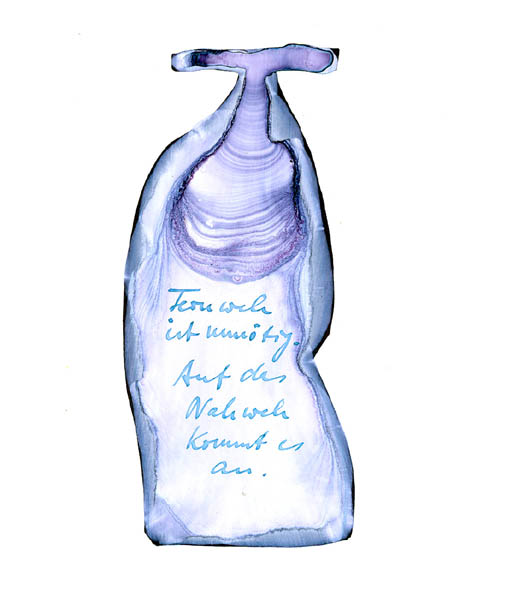 Fernweh
ist unnötig.
Auf das
Nahweh
kommt es
an.